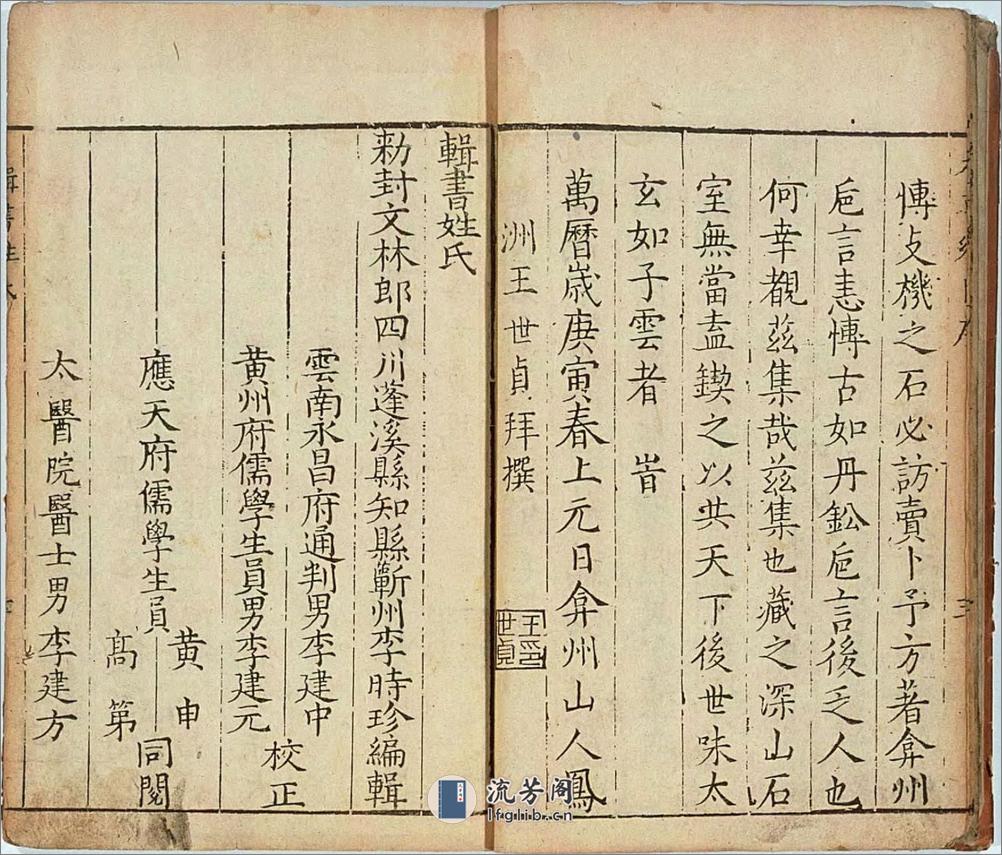 愽攴機之石必訪賣卜予方著弇州
巵言恚愽古如丹鈆巵言後乏人也
何幸覩兹集哉兹集也藏之深山石
室無當盍鍥之以共天下後世味太
玄如子雲者 旹
萬曆歲庚寅春上元日弇州山人鳳
洲王世貞拜撰
王世貞印
輯書姓氏
勑封文林郎四川蓬溪縣知縣蘄州李時珍編輯
雲南永昌府通判男李建中
黄州府儒學生員男李建元
校正
應天府儒學生員
黄申
高第
同閱
太醫院醫士男李建方
輯書姓氏
三
流芳阁
lfglib.cn